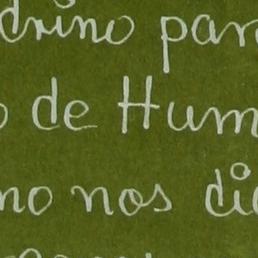 drino par
o de Hum
no nos di